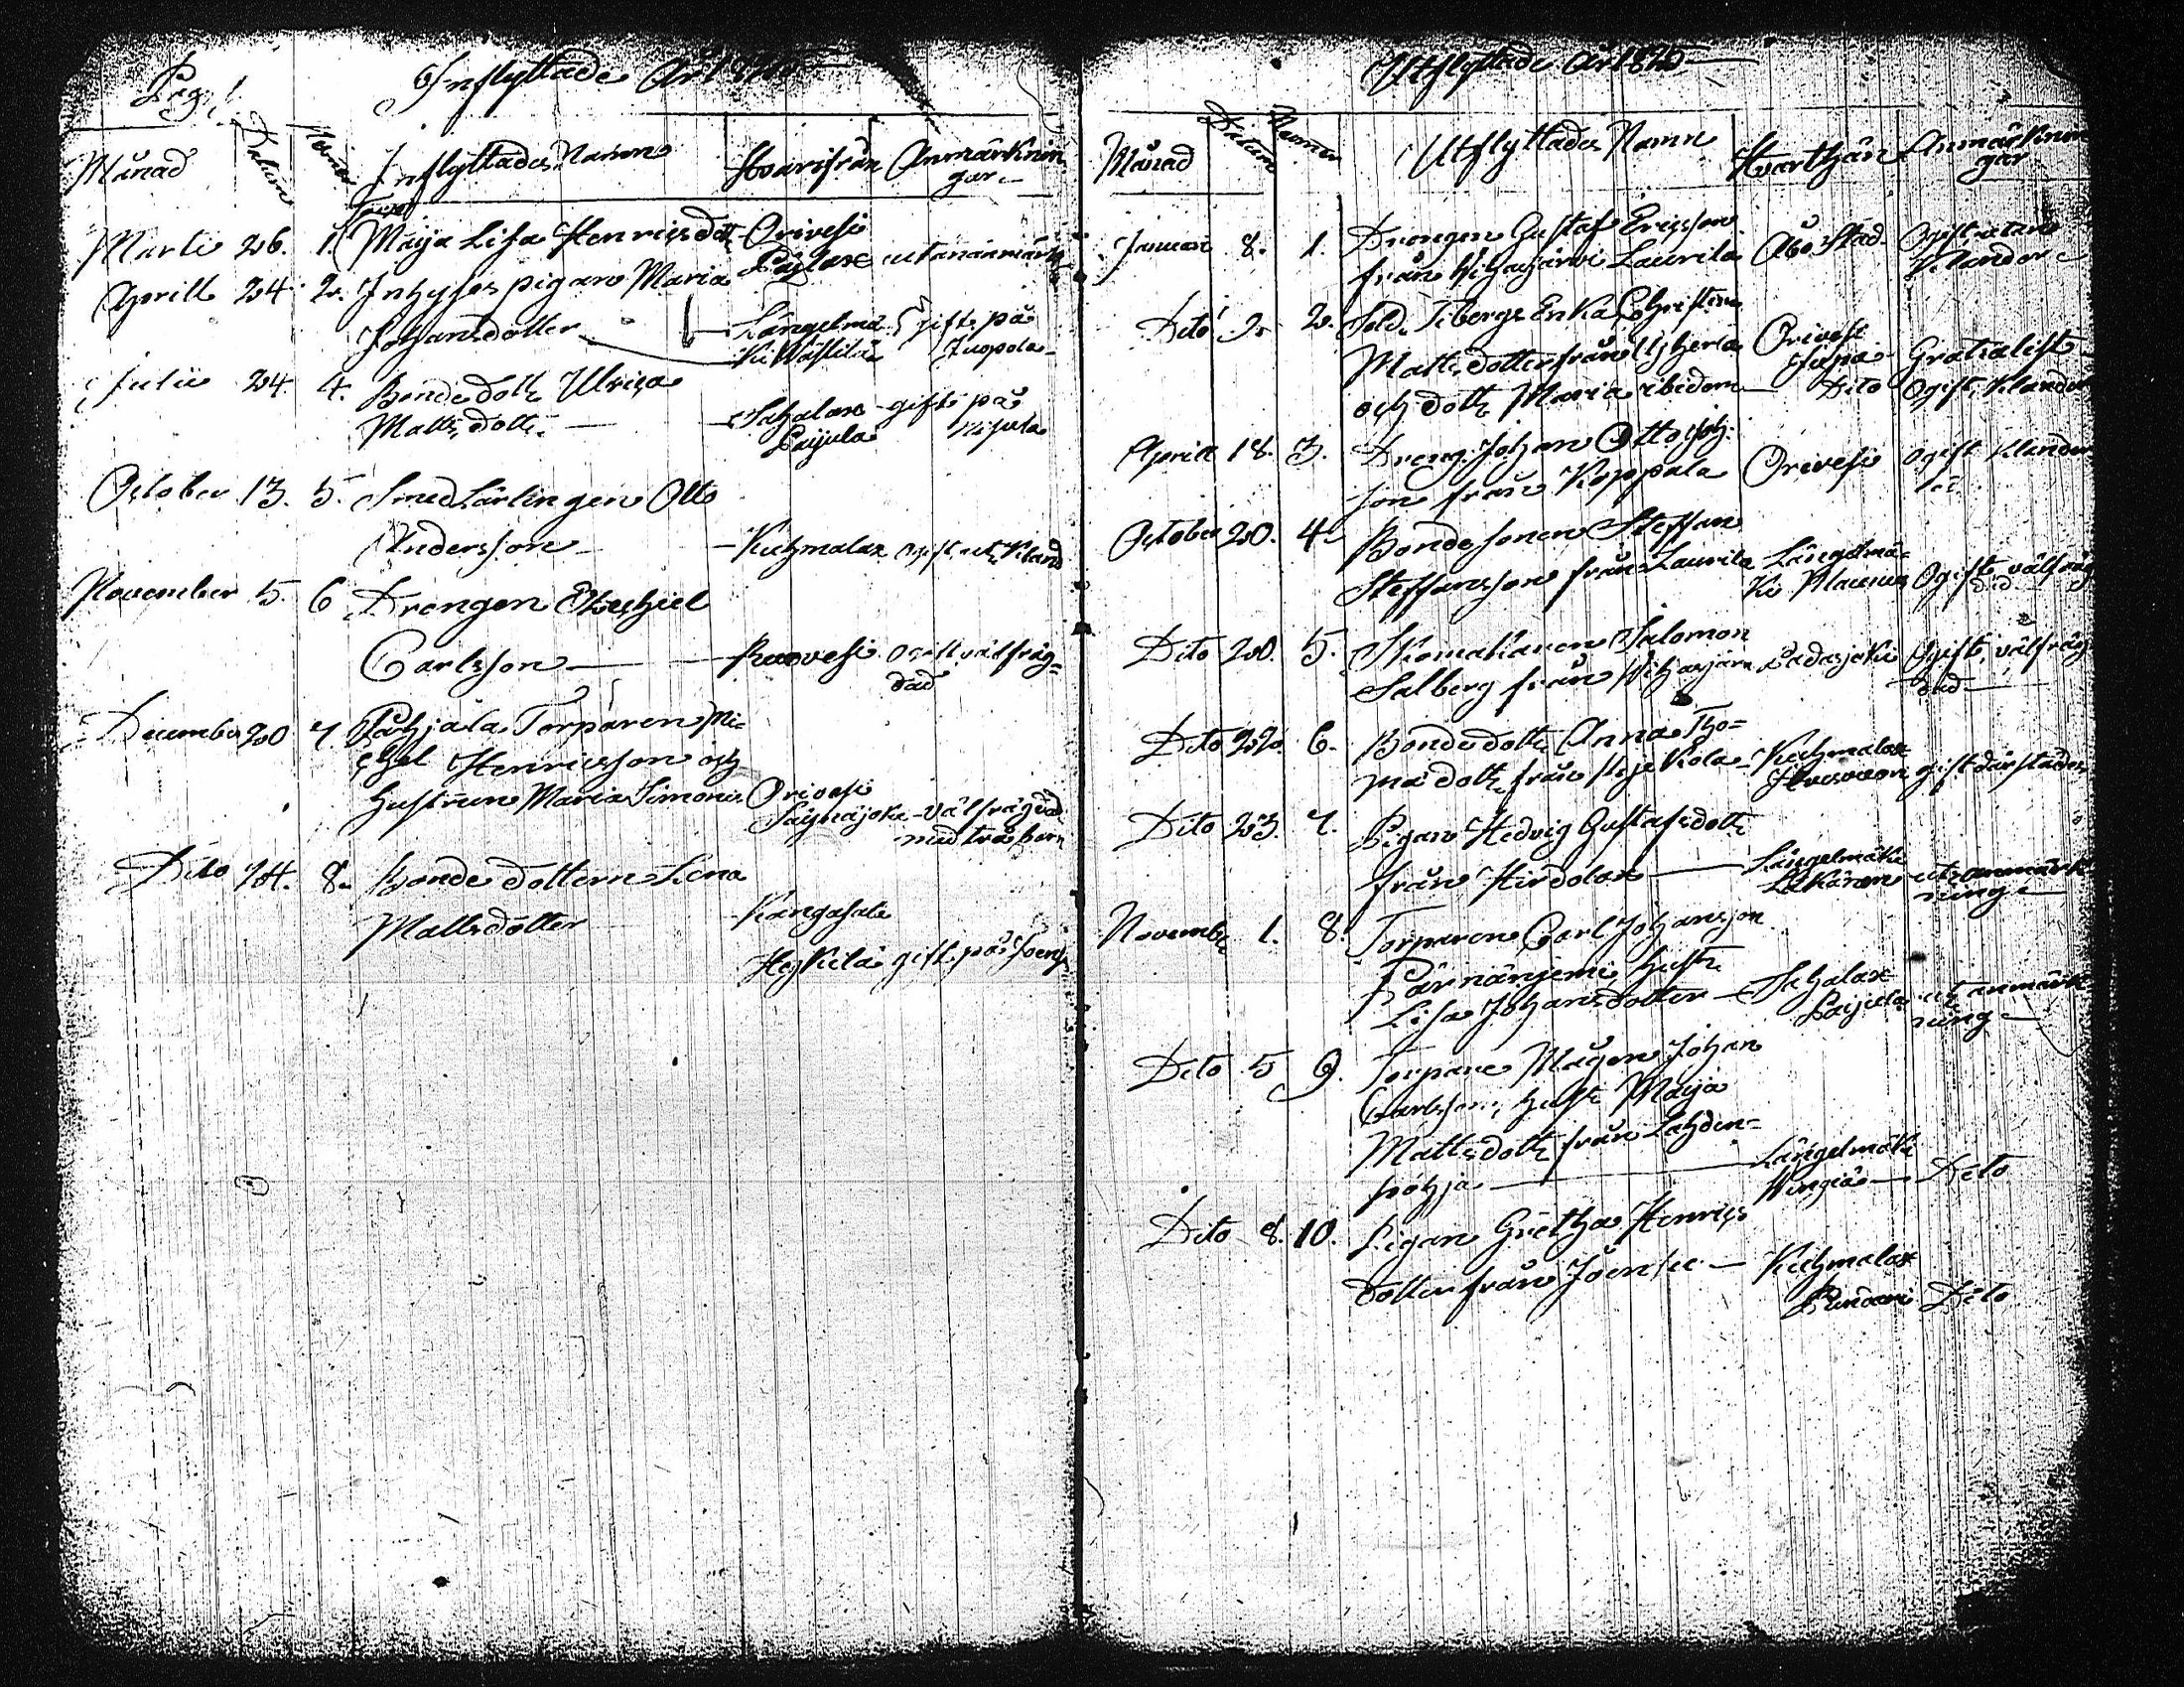 Pag. 1.
Inflyttade År 1820
Månad Datum Numer Inflyttades Namn Hvarifrån Anmärknin
gar
Martii 26. 1. Maija Lisa Henricsdott Orivesi
Päjlax utan anmärk
Aprill 24 2. Inhyses pigan Maria
Johansdotter Längelmä gift på
ki Wästilä Juopola
Julii 24. 4. Bondedottr Ulrica
Matts dottr Sahalax gift på
Paijula
October 13. 5. Smedlärlingen Otto
Andersson Kuhmalax ogift utr kland
November 5. 6 Drengen Ezechiel
Carlsson Ruovesi ogift välfräg=
dad
December 20 7. Påhjala Torparen Mi=
chel Henricsson och
hustrun Maria Simons Orivesi
Säynäjoki välfrägdad
med två barn
Dito 24. 8. Bonde dottern Lena
Mattsdotter Kangasala
Heikkilä gift på Joens
Utflyttade År 1820
Månad Datum Numer Utflyttades Namn Hvarthän Anmärknin
gar
Januari 8. 1. Drengen Gustaf Ericsson
från Wihasjärvi Laurila Åbo Stad. Ogift utan
klander
Dito 2. Sold. Tibergs Enka Christina
Mattsdotter från Orivesi
och dottr Maria ibidem Dito Gratialist
Ogift, klander
Aprill 18. 3. Dreng. Johan Otto Joh:
son från Koppala Orivesi ogift klander
October 20. 4. Bondesonen Steffan
Steffansson från Laurila Längelmä=
ki Ogift välfräg
dad
Dito 20. 5. Skomakaren Salomon
Salberg från Wihasjärvi Padasjoki Ogift, välfräg
dad
Dito 22. 6. Bondedottr Anna Tho=
mædottr från Kuhmalax
gift därstädes
Dito 23. 7. Pigan Hedvig Gustafsdottr
från Hirdolax Längelmäki
utr anmärk
ning
Novembr 1. 8. Torparen Carl Johansson
Pärnäniemi, hustr
Lisa Johansdotter Sahalax
Paijula utr anmärk
ning
Dito 5 9. Torpare Mågen Johan
Carlsson, hustr Maija
Mattsdottr från Lahden=
pohja Längelmäki
Dito
Dito 8. 10. Pigan Gretha Henrics
dotter från Joensuu Kuhmalax
Dito